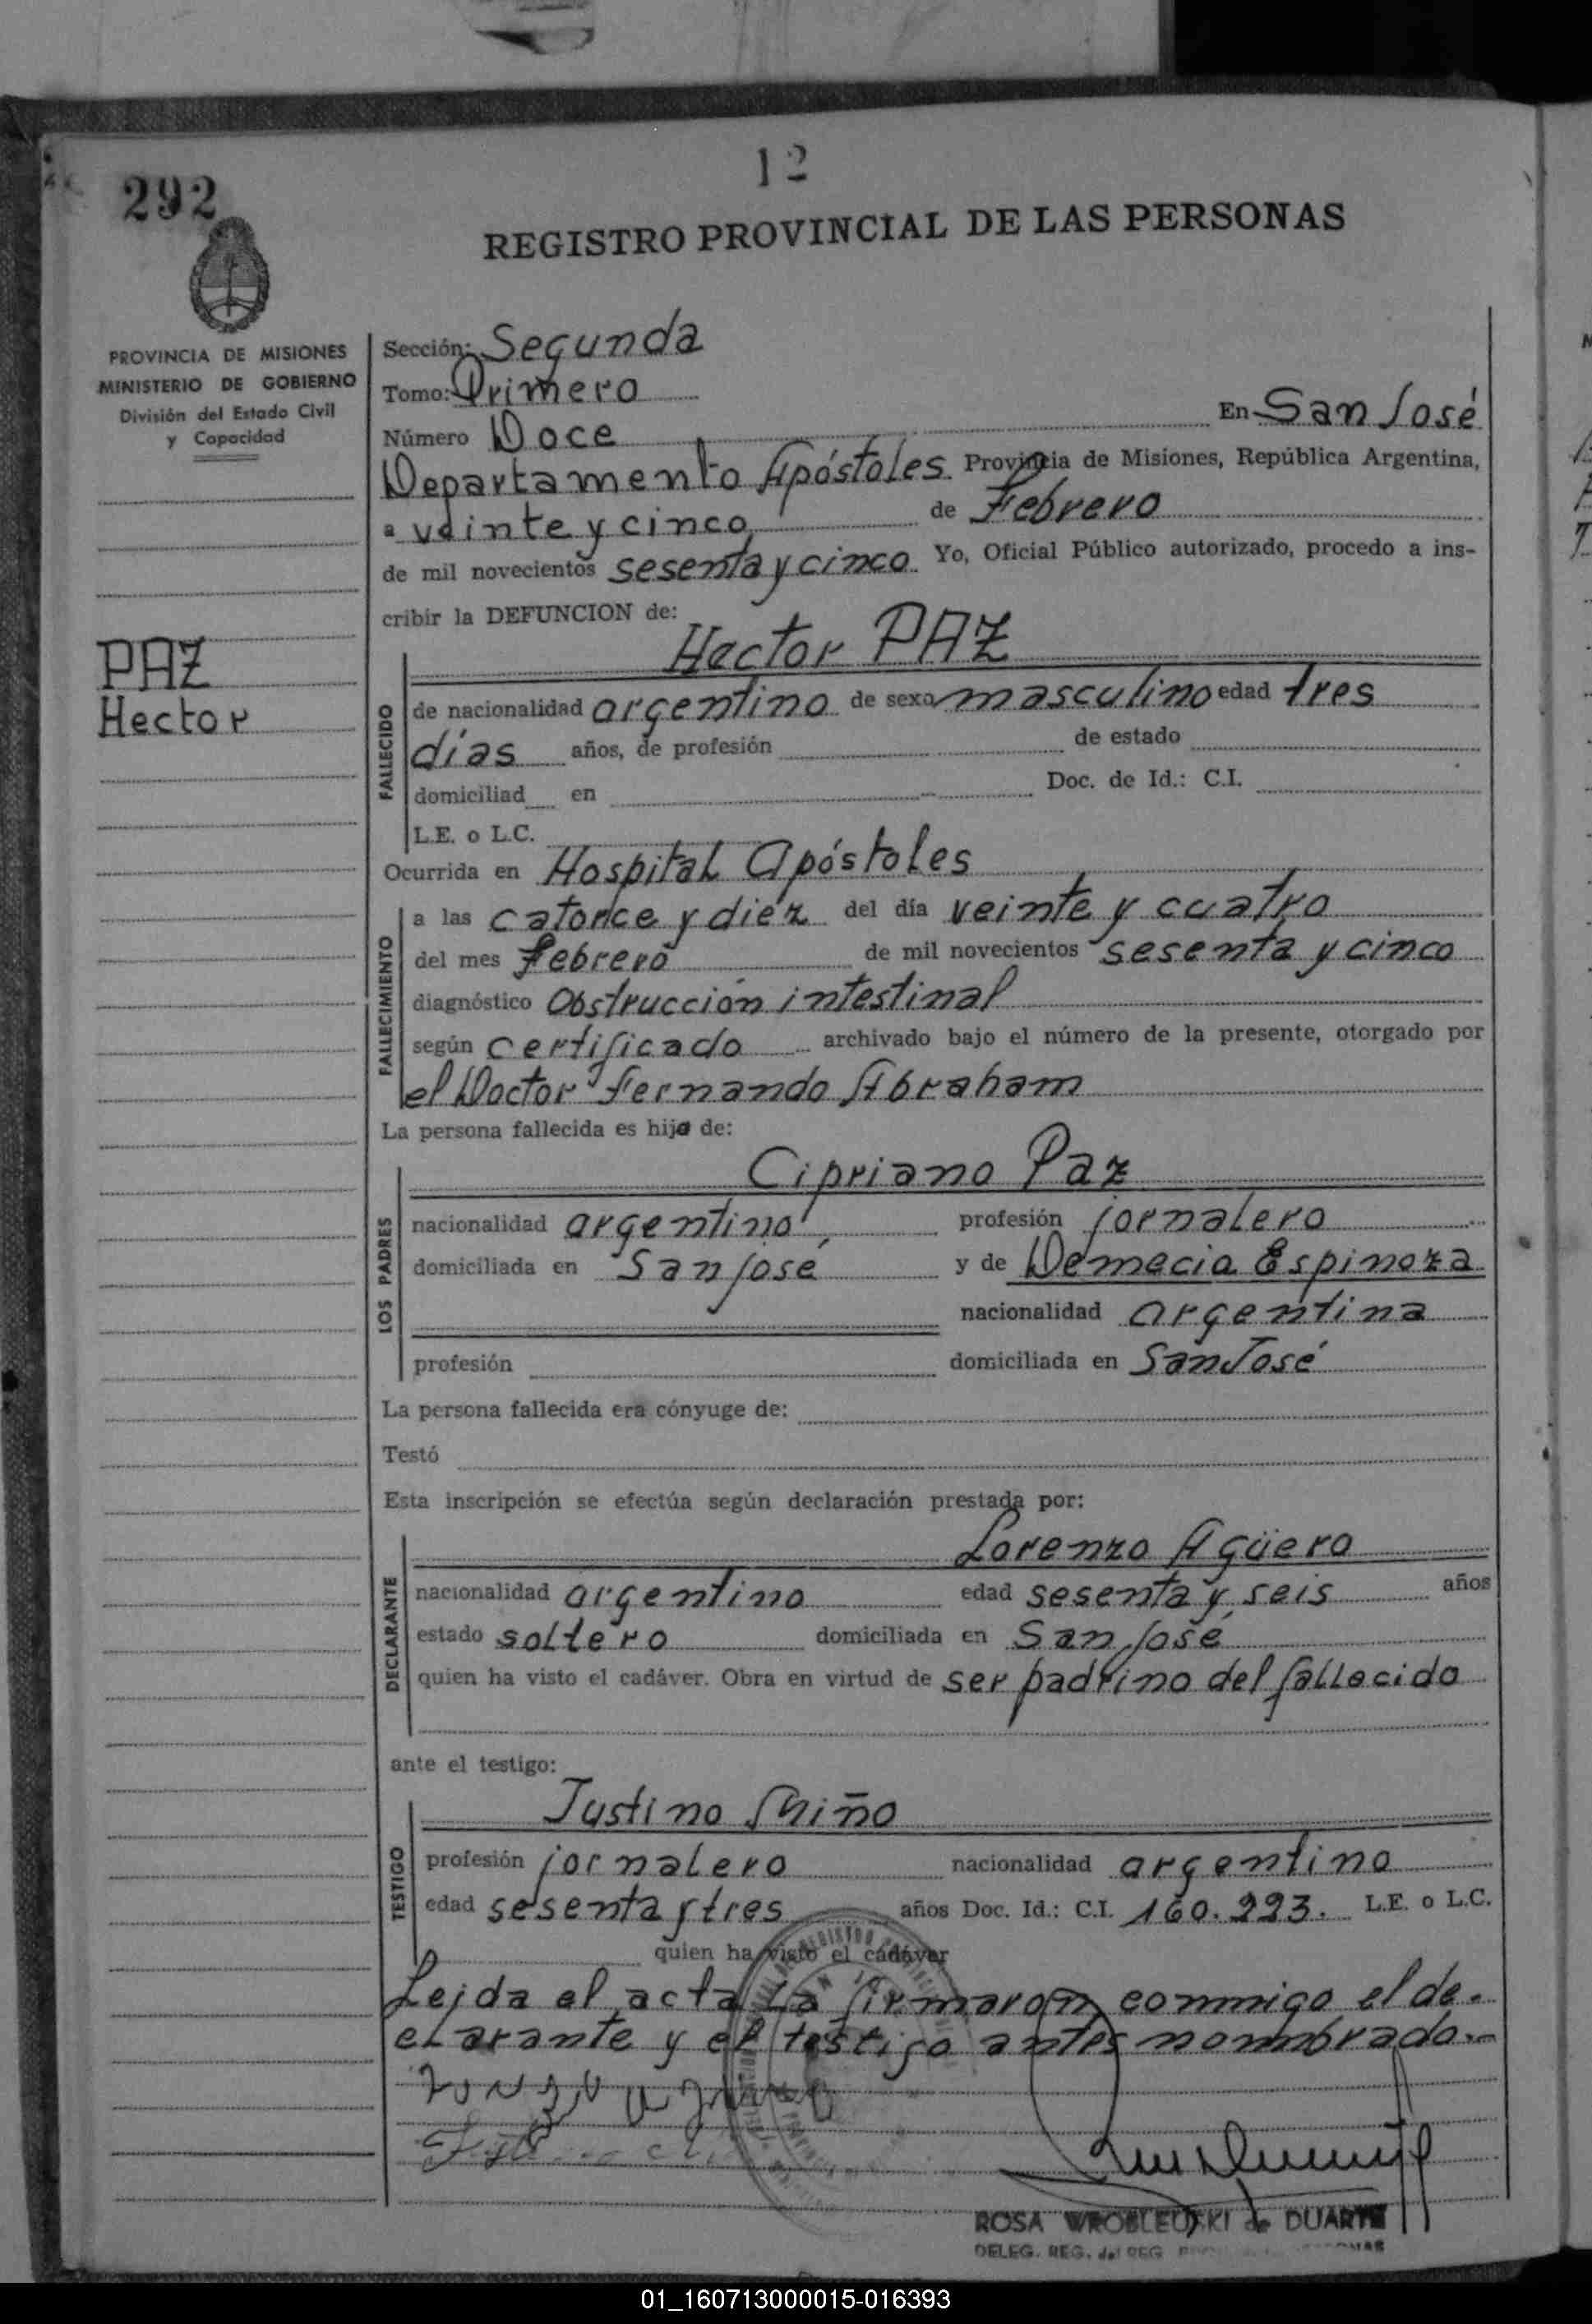 292
12
REGISTRO PROVINCIAL DE LAS PERSONAS
PROVINCIA DE MISIONES
MINISTERIO DE GOBIERNO
División del Estado Civil
y Capacidad
PAZ
Hector
Sección: Segunda
Tomo: Primero
En San José
Número Doce
Departamento Apóstoles Provincia de Misiones, República Argentina,
a veinte y cinco de Febrero
de mil novecientos sesenta y cinco Yo, Oficial Público autorizado, procedo a ins-
cribir la DEFUNCION de:
Hector PAZ
FALLECIDO
de nacionalidad argentino de sexo masculino edad tres
días años, de profesión de estado
domiciliad en Doc. de Id.: C.I.
L.E. o L.C.
Ocurrida en Hospital Apóstoles
FALLECIMIENTO
a las catorce y diez del día veinte y cuatro
del mes Febrero de mil novecientos sesenta y cinco
diagnóstico Obstrucción intestinal
según certificado archivado bajo el número de la presente, otorgado por
el Doctor Fernando Abraham
La persona fallecida es hijo de:
LOS PADRES
Cipriano Paz
nacionalidad argentino profesión jornalero
domiciliada en San José y de Demecia Espinoza
nacionalidad argentina
profesión domiciliada en San José
La persona fallecida era cónyuge de:
Testó
Esta inscripción se efectúa según declaración prestada por:
DECLARANTE
Lorenzo Agüero
nacionalidad argentino edad sesenta y seis años
estado soltero domiciliada en San José
quien ha visto el cadáver. Obra en virtud de ser padrino del fallecido
ante el testigo:
TESTIGO
Justino Miño
profesión jornalero nacionalidad argentino
edad sesenta y tres años Doc. Id.: C.I. 160.993. L.E. o L.C.
quien ha visto el cadáver
Leida el acta la firmaron conmigo el de-
clarante y el testigo antes nombrado.-
ROSA WROBLEUSKI de DUARTE
DELEG. REG. del REG
01_160713000015-016393